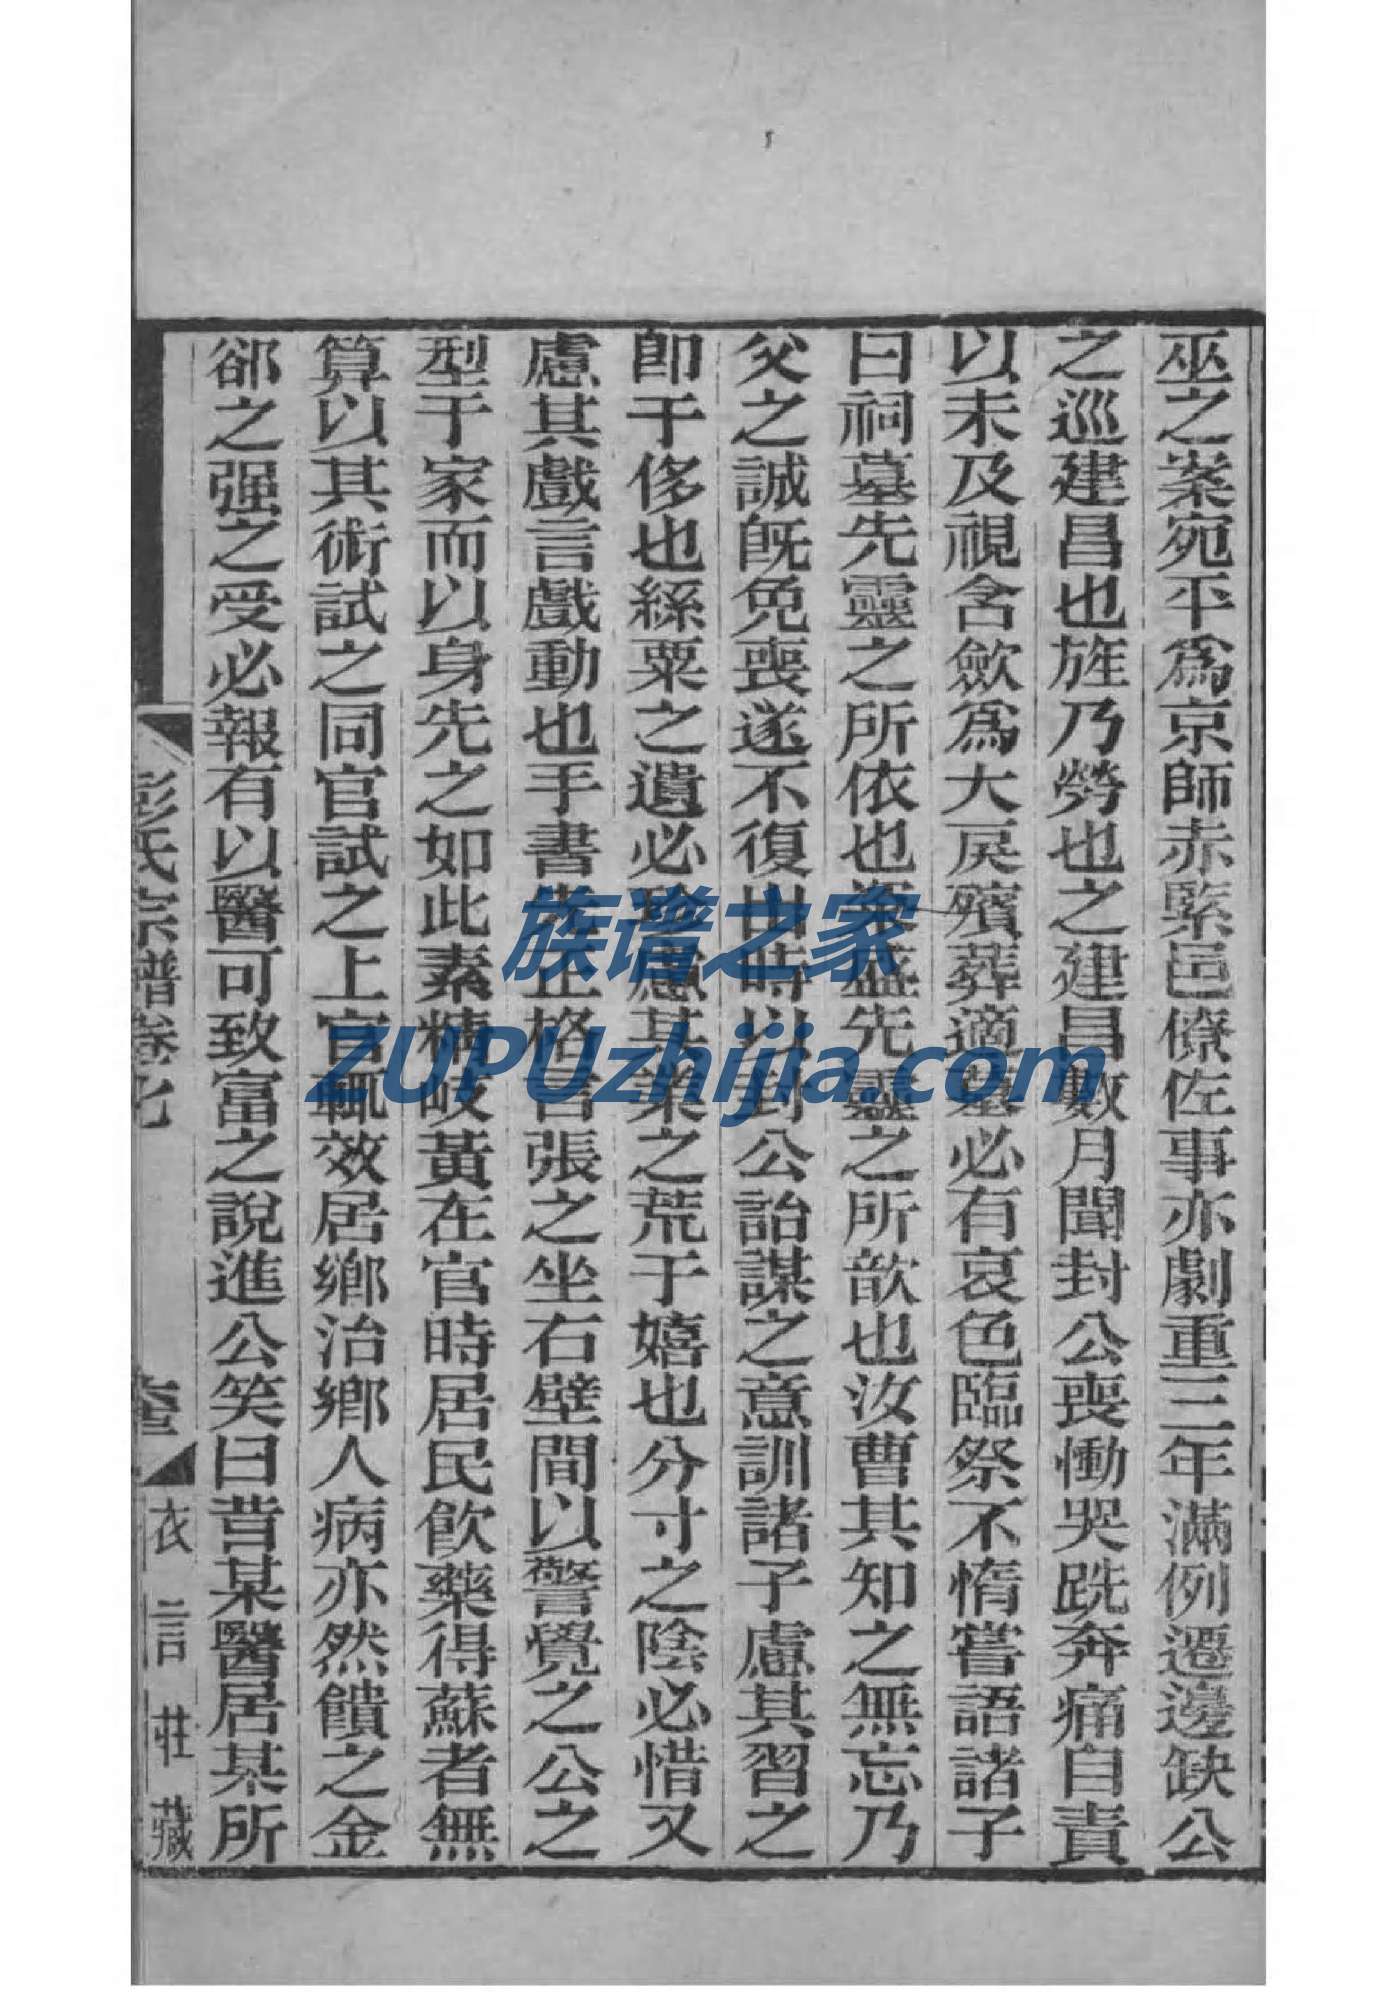 巫之案宛平爲京師赤緊邑僚佐事亦劇重三年滿例遷邊缺公
之巡建昌也旌乃勞也之建昌數月聞封公喪慟哭跣奔痛自責
以未及視含歛爲大戾殯葬適墓必有哀色臨祭不惰嘗語諸子
曰祠墓先靈之所依也粢盛先靈之所歆也汝曹其知之無忘乃
父之誠旣免喪遂不復出時以封公詒謀之意訓諸子慮其習之
卽于侈也絲粟之遺必珍慮其業之荒于嬉也分寸之陰必惜又
慮其戲言戲動也手書先正格言張之坐右壁間以警覺之公之
型于家而以身先之如此素精岐黃在官時居民飮藥得蘇者無
算以其術試之同官試之上官輒效居鄉治鄉人病亦然饋之金
郤之强之受必報有以醫可致富之說進公笑曰昔某醫居某所
彭氏宗譜卷七
衣言莊藏
族谱之家
ZUPUzhijia.com